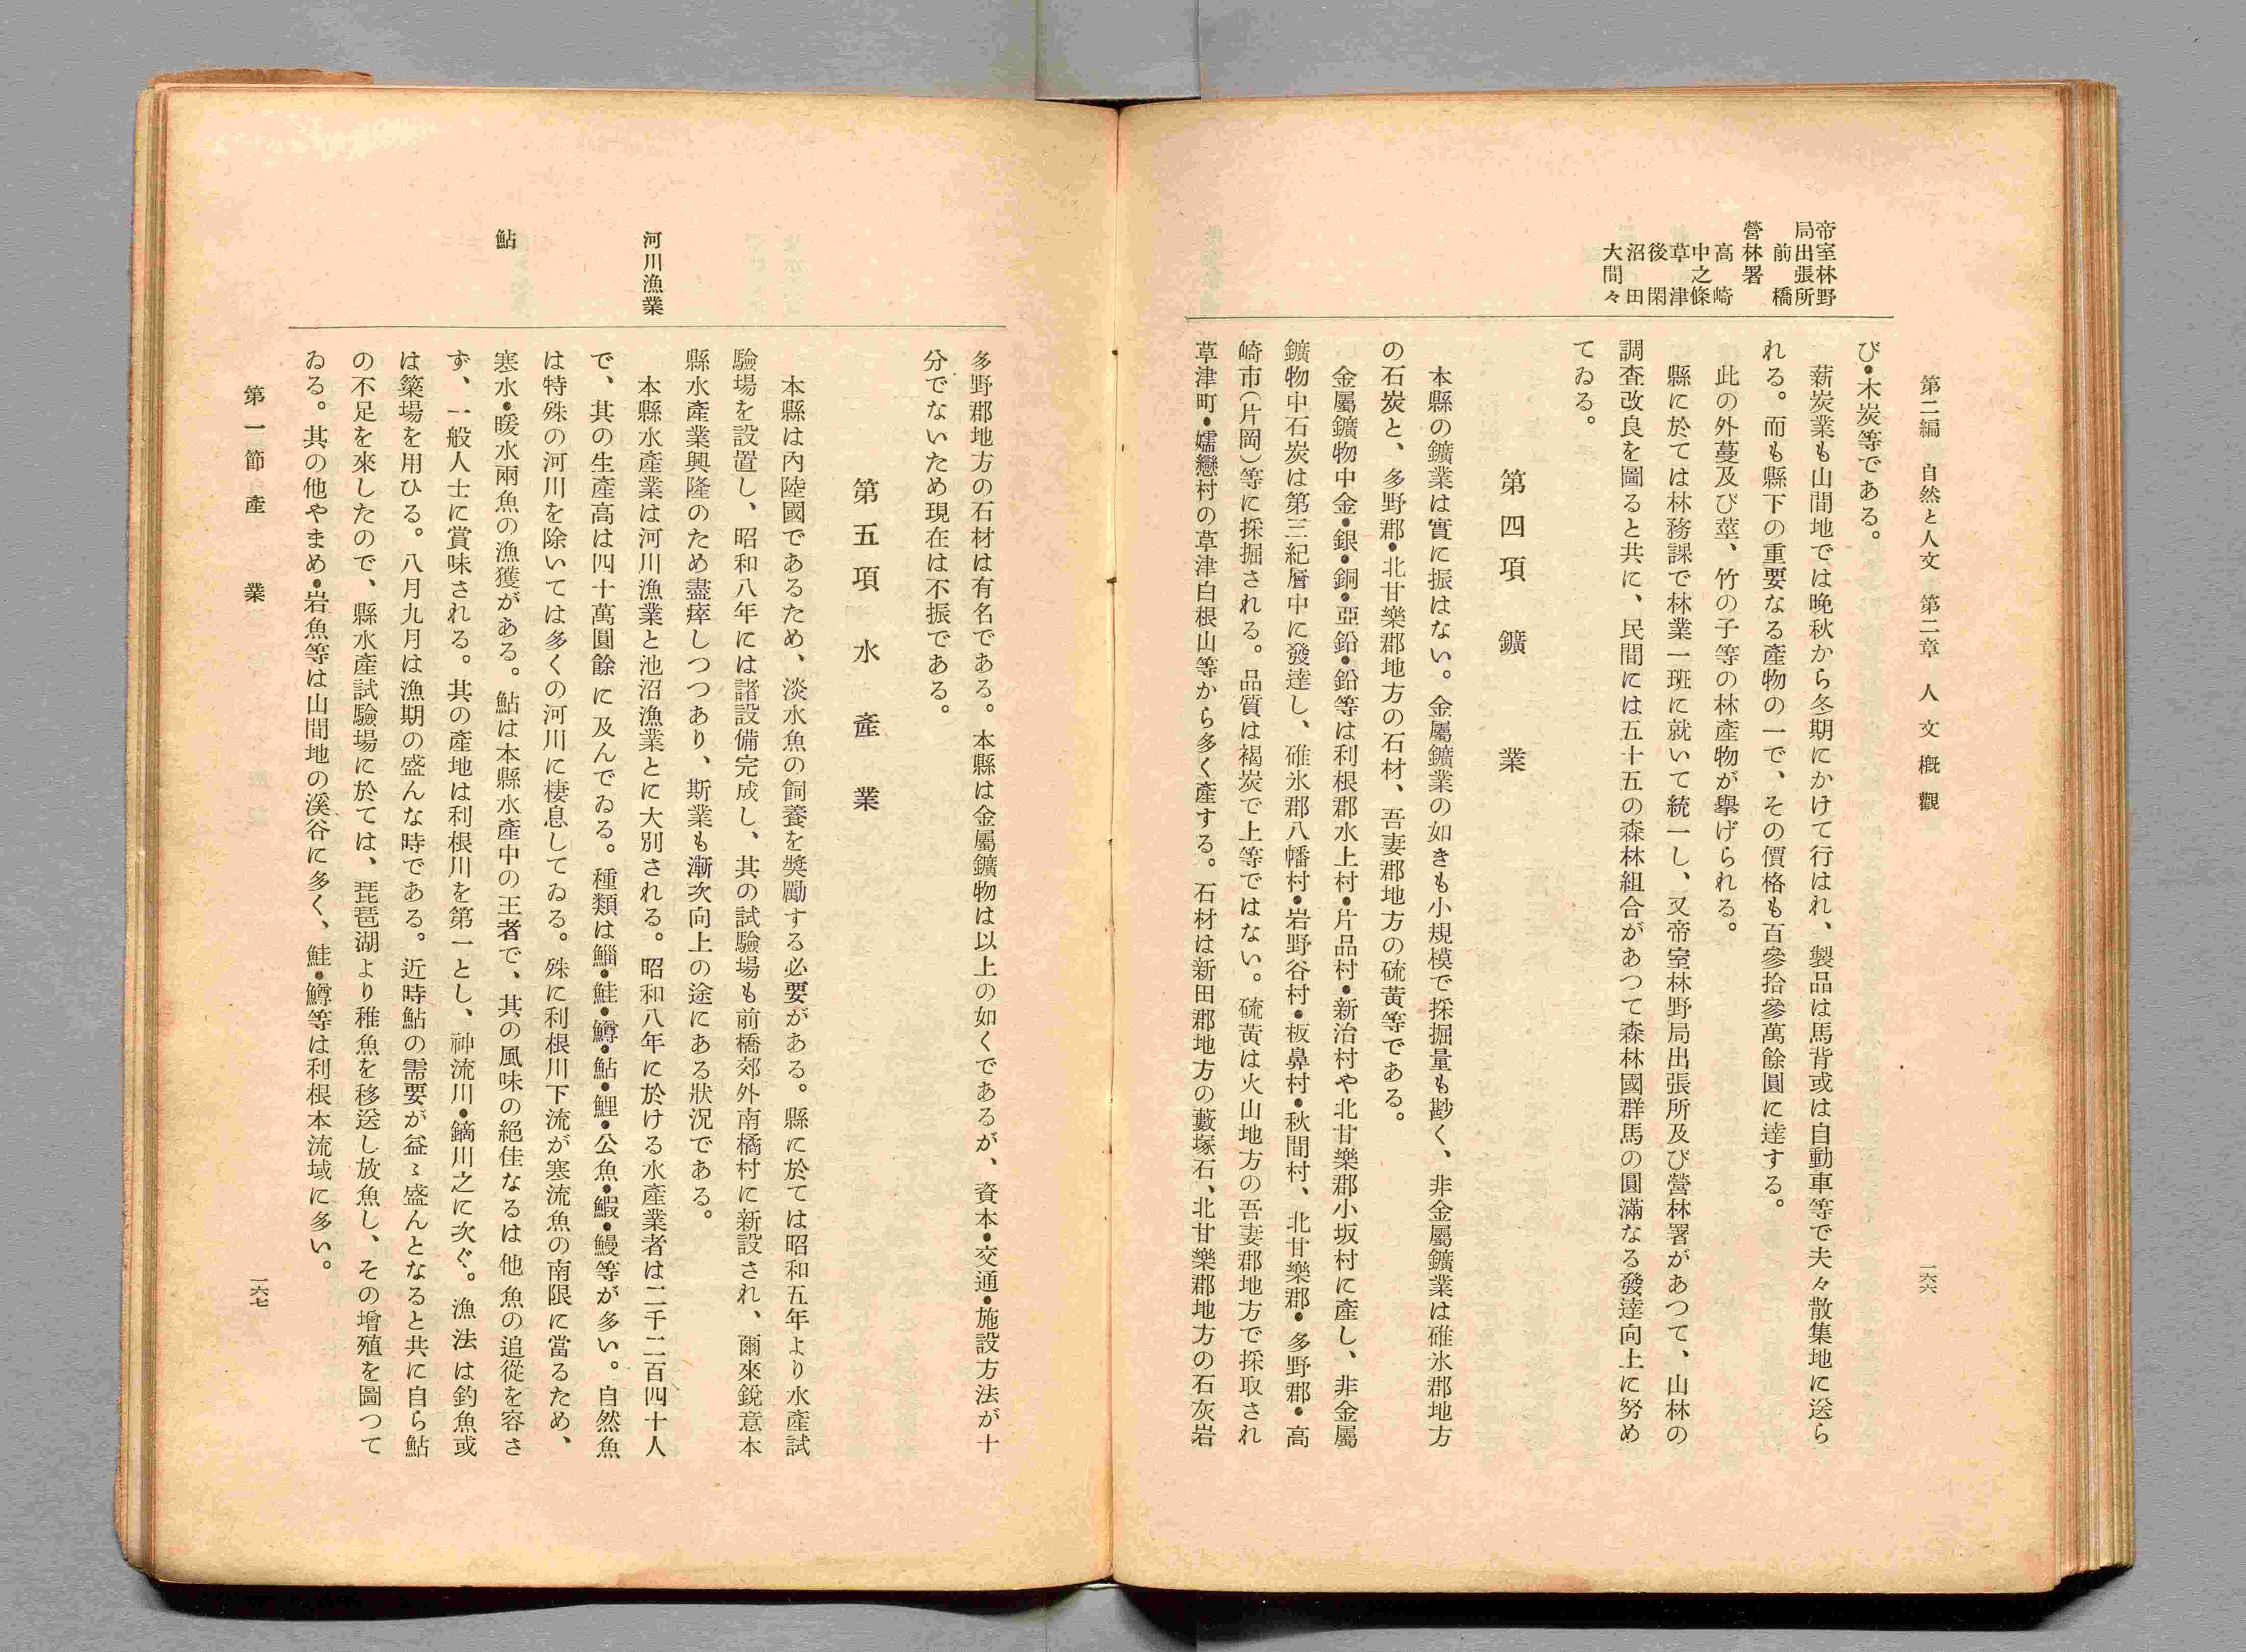 第二編　自然と人文　第二章　人文概觀
一六六
帝室林野
局出張所
前橋
營林署
高崎
中之條
草津
後閑
沼田
大間々
び・木炭等である。
薪炭業も山間地では晩秋から冬期にかけて行はれ、製品は馬背或は自動車等で夫々散集地に送ら
れる。而も縣下の重要なる產物の一で、その價格も百參拾參萬餘圓に達する。
此の外蔓及び蕋、竹の子等の林產物が擧げられる。
縣に於ては林務課で林業一班に就いて統一し、又帝室林野局出張所及び營林署があつて、山林の
調査改良を圖ると共に、民間には五十五の森林組合があつて森林國群馬の圓滿なる發達向上に努め
てゐる。
第四項　鑛業
本縣の鑛業は實に振はない。金屬鑛業の如きも小規模で採掘量も尠く、非金屬鑛業は碓氷郡地方
の石炭と、多野郡・北甘樂郡地方の石材、吾妻郡地方の硫黃等である。
金屬鑛物中金・銀・銅・亞鉛・鉛等は利根郡水上村・片品村・新治村や北甘樂郡小坂村に產し、非金屬
鑛物中石炭は第三紀層中に發達し、碓氷郡八幡村・岩野谷村・板鼻村・秋間村、北甘樂郡・多野郡・高
崎市（片岡）等に採掘される。品質は褐炭で上等ではない。硫黃は火山地方の吾妻郡地方で採取され
草津町・嬬戀村の草津白根山等から多く產する。石材は新田郡地方の藪塚石、北甘樂郡地方の石灰岩
多野郡地方の石材は有名である。本縣は金屬鑛物は以上の如くであるが、資本・交通・施設方法が十
分でないため現在は不振である。
第五項　水產業
本縣は內陸國であるため、淡水魚の飼養を獎勵する必要がある。縣に於ては昭和五年より水產試
驗場を設置し、昭和八年には諸設備完成し、其の試驗場も前橋郊外南橘村に新設され、爾來銳意本
縣水產業興隆のため盡瘁しつつあり、斯業も漸次向上の途にある狀況である。
河川漁業
本縣水產業は河川漁業と池沼漁業とに大別される。昭和八年に於ける水產業者は二千二百四十人
で、其の生產高は四十萬圓餘に及んでゐる。種類は鯔・鮭・鱒・鮎・鯉・公魚・鰕・鰻等が多い。自然魚
は特殊の河川を除いては多くの河川に棲息してゐる。殊に利根川下流が寒流魚の南限に當るため、
鮎
寒水・暖水兩魚の漁獲がある。鮎は本縣水產中の王者で、其の風味の絕佳なるは他魚の追從を容さ
ず、一般人士に賞味される。其の產地は利根川を第一とし、神流川・鏑川之に次ぐ。漁法は釣魚或
は簗場を用ひる。八月九月は漁期の盛んな時である。近時鮎の需要が益〻盛んとなると共に自ら鮎
の不足を來したので、縣水產試驗場に於ては、琵琶湖より稚魚を移送し放魚し、その增殖を圖つて
ゐる。其の他やまめ・岩魚等は山間地の溪谷に多く、鮭・鱒等は利根本流域に多い。
第一節　產業
一六七